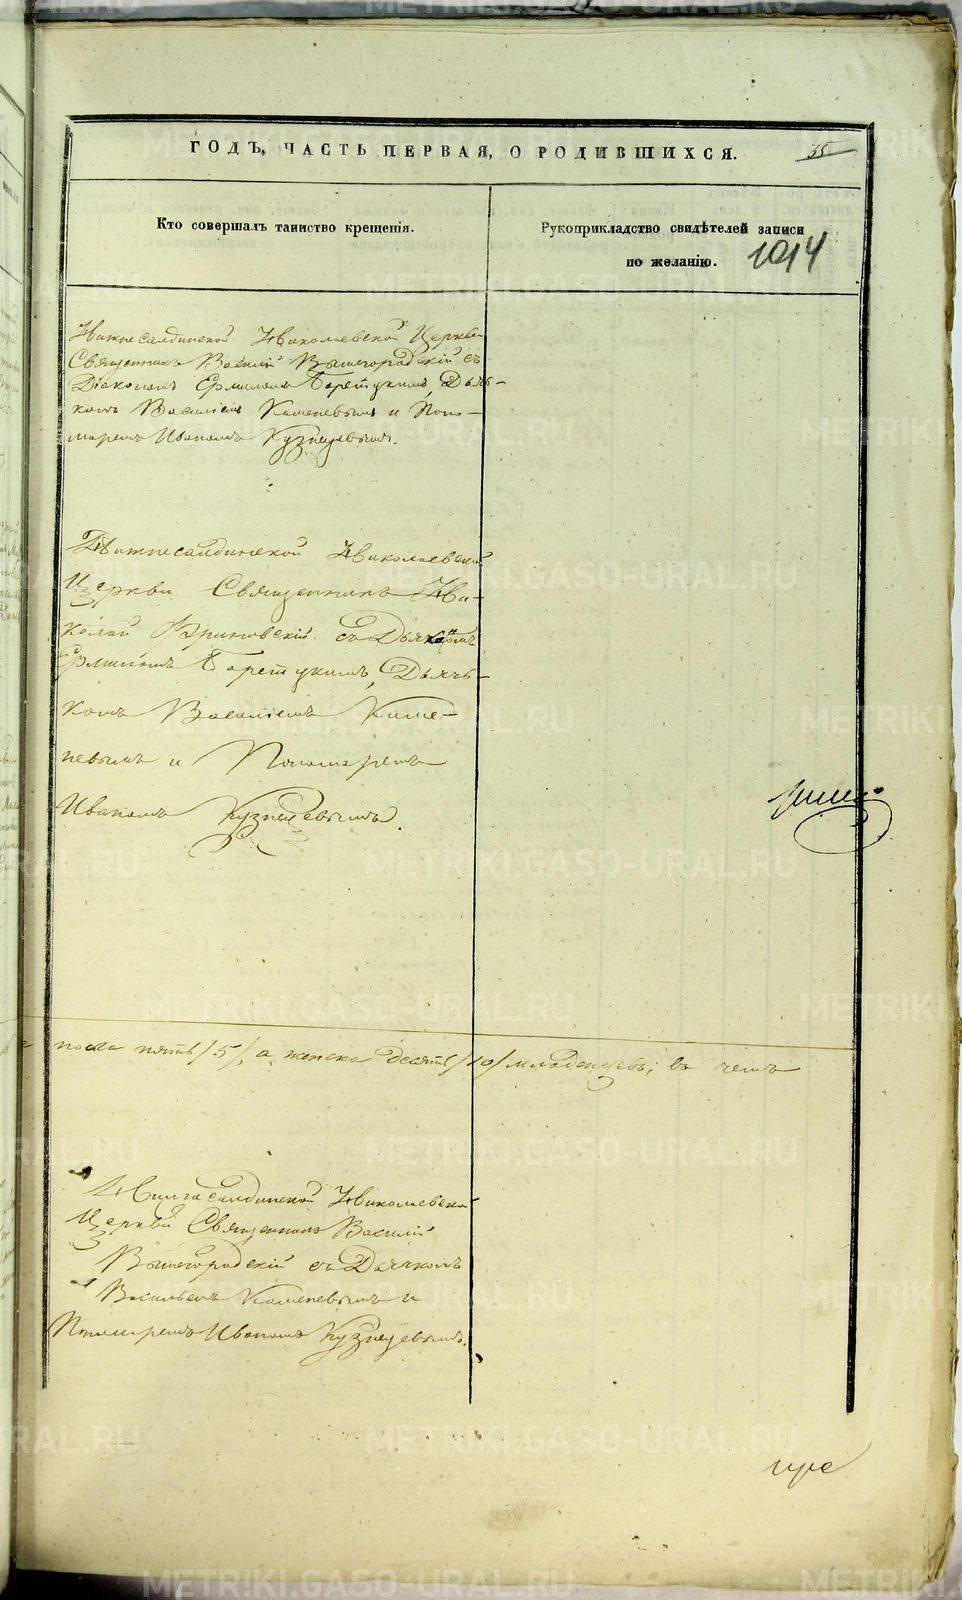 ГОДЪ, ЧАСТЬ ПЕРВАЯ, О РОДИВШИХСЯ.
35
Кто совершалъ таинство крещенія.
Рукоприкладство свидѣтелей записи
по желанію.
1014
Нижнесалдинской Николаевской Церкви
Священникъ Василій Вышегородскій съ
Діакономъ Ермиломъ Боретцкимъ, Дьяч-
комъ Василіемъ Каменевымъ и Поно-
маремъ Иваномъ Кузнецевымъ.
Нижнесалдинской Николаевской
Церкви Священникъ Ни-
колай съ
Ермиломъ Боретцкимъ, Дьячь-
комъ Василіемъ Каме-
невымъ и Пономаремъ
Иваномъ Кузнецевымъ.
пола пять /5/, а женска десять /10/ младенцевъ; въ чемъ
Нижнесалдинской Николаевской
Церкви Священникъ Василій
Вышегородскій съ Дьячкомъ
Васильемъ Каменевымъ и
Пономаремъ Иваномъ Кузнецевымъ.
METRIKI.GASO-URAL.RU